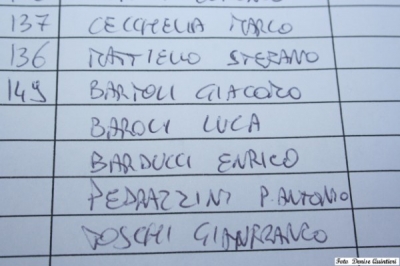 137 CECCHELIA MARCO
136 MATTIELLO STEFANO
149 BARTOLI GIACOMO
BAROCI LUCA
BARDUCCI ENRICO
PEDRAZZINI P. ANTONIO
TOSCHI GIANFRANCO
Foto Denise Quintieri